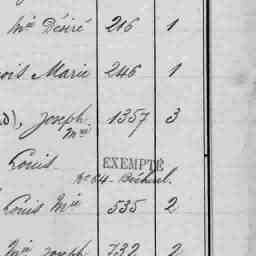 Mie Désiré 216 1
ois Marie 246 1
d), Joseph Mie 1357 3
Louis EXEMPTÉ
No 64 - Bécherel.
Louis Mie 535 2
Mie Joseph 732 2